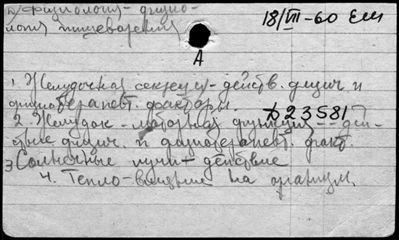 Д/Физиология - физио-
логия пищеварения
18/VII-60 Еш
А
1. Желудочная секреция - действ. физич. и
физиотерапевт. факторы.
Д23581
2. Желудок - моторная функция - дей-
ствие физич. и физиотерапевт. факт.
3 Солнечные лучи - действие
4. Тепло - влияние на организм.